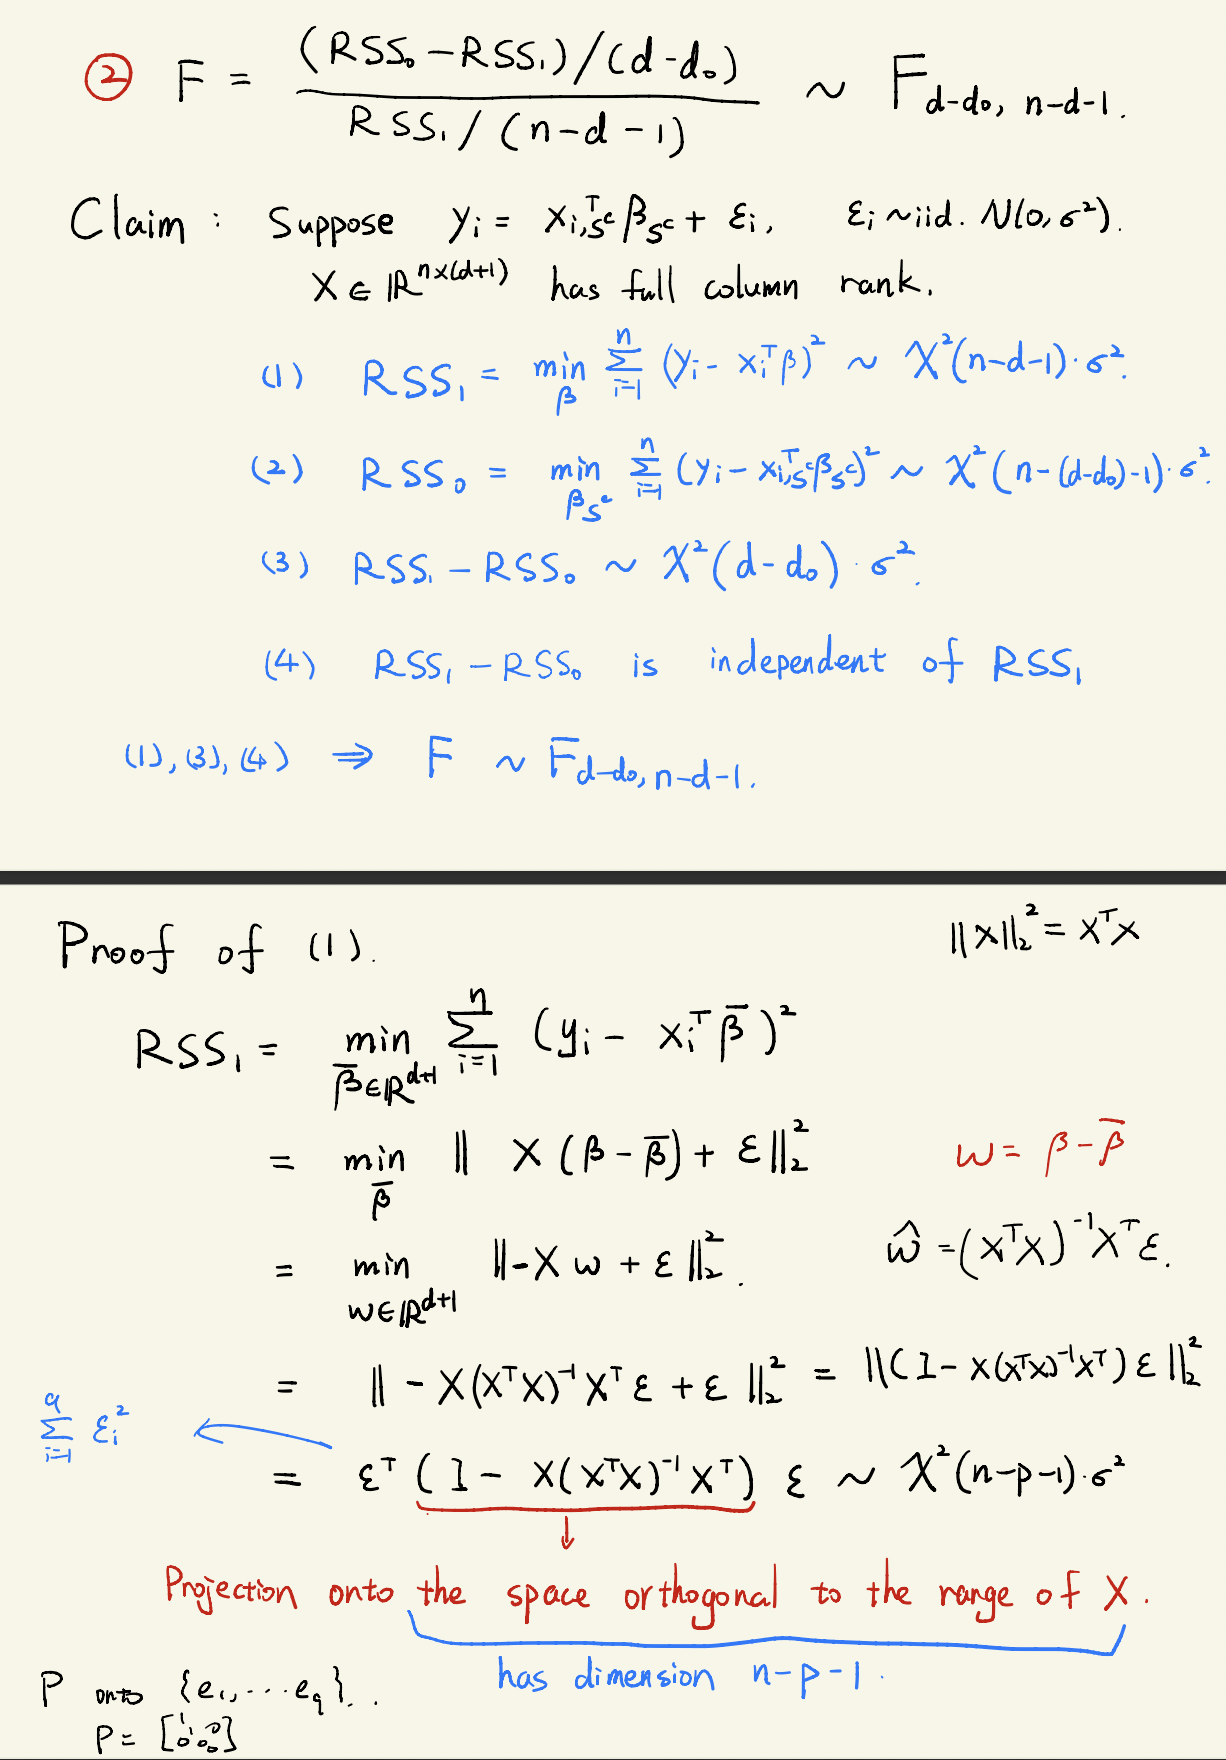 ② F = (RSS₀ − RSS₁)/(d−d₀) / RSS₁/(n−d−1) ~ F_{d−d₀, n−d−1}.
Claim : Suppose yᵢ = x_{i,Sᶜ}^T β_{Sᶜ} + εᵢ, εᵢ ~ iid. N(0, σ²).
X ∈ ℝ^{n×(d+1)} has full column rank.
(1) RSS₁ = min_β Σ_{i=1}^n (yᵢ − xᵢ^T β)² ~ χ²(n−d−1)·σ².
(2) RSS₀ = min_{β_{Sᶜ}} Σ_{i=1}^n (yᵢ − x_{i,Sᶜ}^T β_{Sᶜ})² ~ χ²(n−(d−d₀)−1)·σ².
(3) RSS₁ − RSS₀ ~ χ²(d−d₀)·σ².
(4) RSS₁ − RSS₀ is independent of RSS₁
(1), (3), (4) ⇒ F ~ F_{d−d₀, n−d−1}.
Proof of (1). ‖x‖₂² = x^T x
RSS₁ = min_{β̄∈ℝ^{d+1}} Σ_{i=1}^n (yᵢ − xᵢ^T β̄)²
= min_{β̄} ‖ X(β − β̄) + ε ‖₂² w = β − β̄
= min_{w∈ℝ^{d+1}} ‖−Xw + ε‖₂². ŵ = (X^T X)^{−1} X^T ε.
= ‖ − X(X^T X)^{−1} X^T ε + ε ‖₂² = ‖(I − X(X^T X)^{−1} X^T) ε‖₂²
Σ_{i=1}^q εᵢ² ←
= ε^T (I − X(X^T X)^{−1} X^T) ε ~ χ²(n−p−1)·σ²
↓
Projection onto the space orthogonal to the range of X.
has dimension n−p−1.
P onto {e₁, ··· e_q}. .
P = [1 1 0 0 0 0]